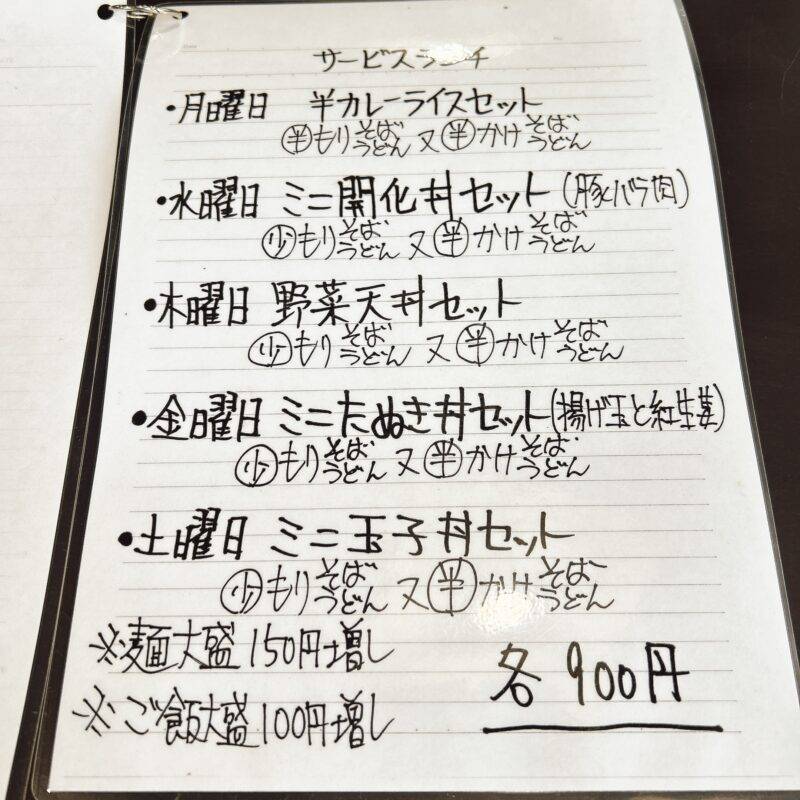 サービスランチ
・月曜日 半カレーライスセット
㊗半もりそばうどん 又 半かけそばうどん
・水曜日 ミニ開化丼セット(豚バラ肉)
少もりそばうどん 又 半かけそばうどん
・木曜日 野菜天丼セット
少もりそばうどん 又 半かけそばうどん
・金曜日 ミニたぬき丼セット(揚げ玉と紅生姜)
少もりそばうどん 又 半かけそばうどん
・土曜日 ミニ玉子丼セット
少もりそばうどん 又 半かけそばうどん
※麺大盛150円増し
各900円
※ご飯大盛100円増し